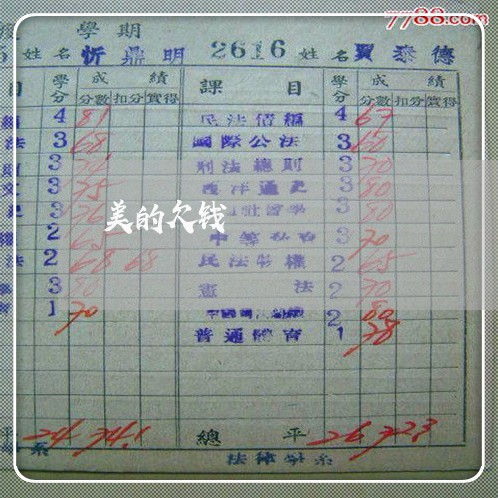 7788.com
學期
5 姓名 忻鼎明 2616 姓名 賈泰德
目 學分 成績 課目 學分 成績
分數 扣分 實得 分數 扣分 實得
4 81 民法債編 4 67
法 3 68 國際公法 3 60
3 刑法總則 3 70
3 75 西洋通史 3 80
3 76 社會學 3 80
2 65 3 70
法 2 68 68 民法物權 2 65
3 80 憲法 2 70
1 70 2 80
普通體育 1 78
美的欠钱
平 24 74.1 總平 26 72.3
系 法律學系